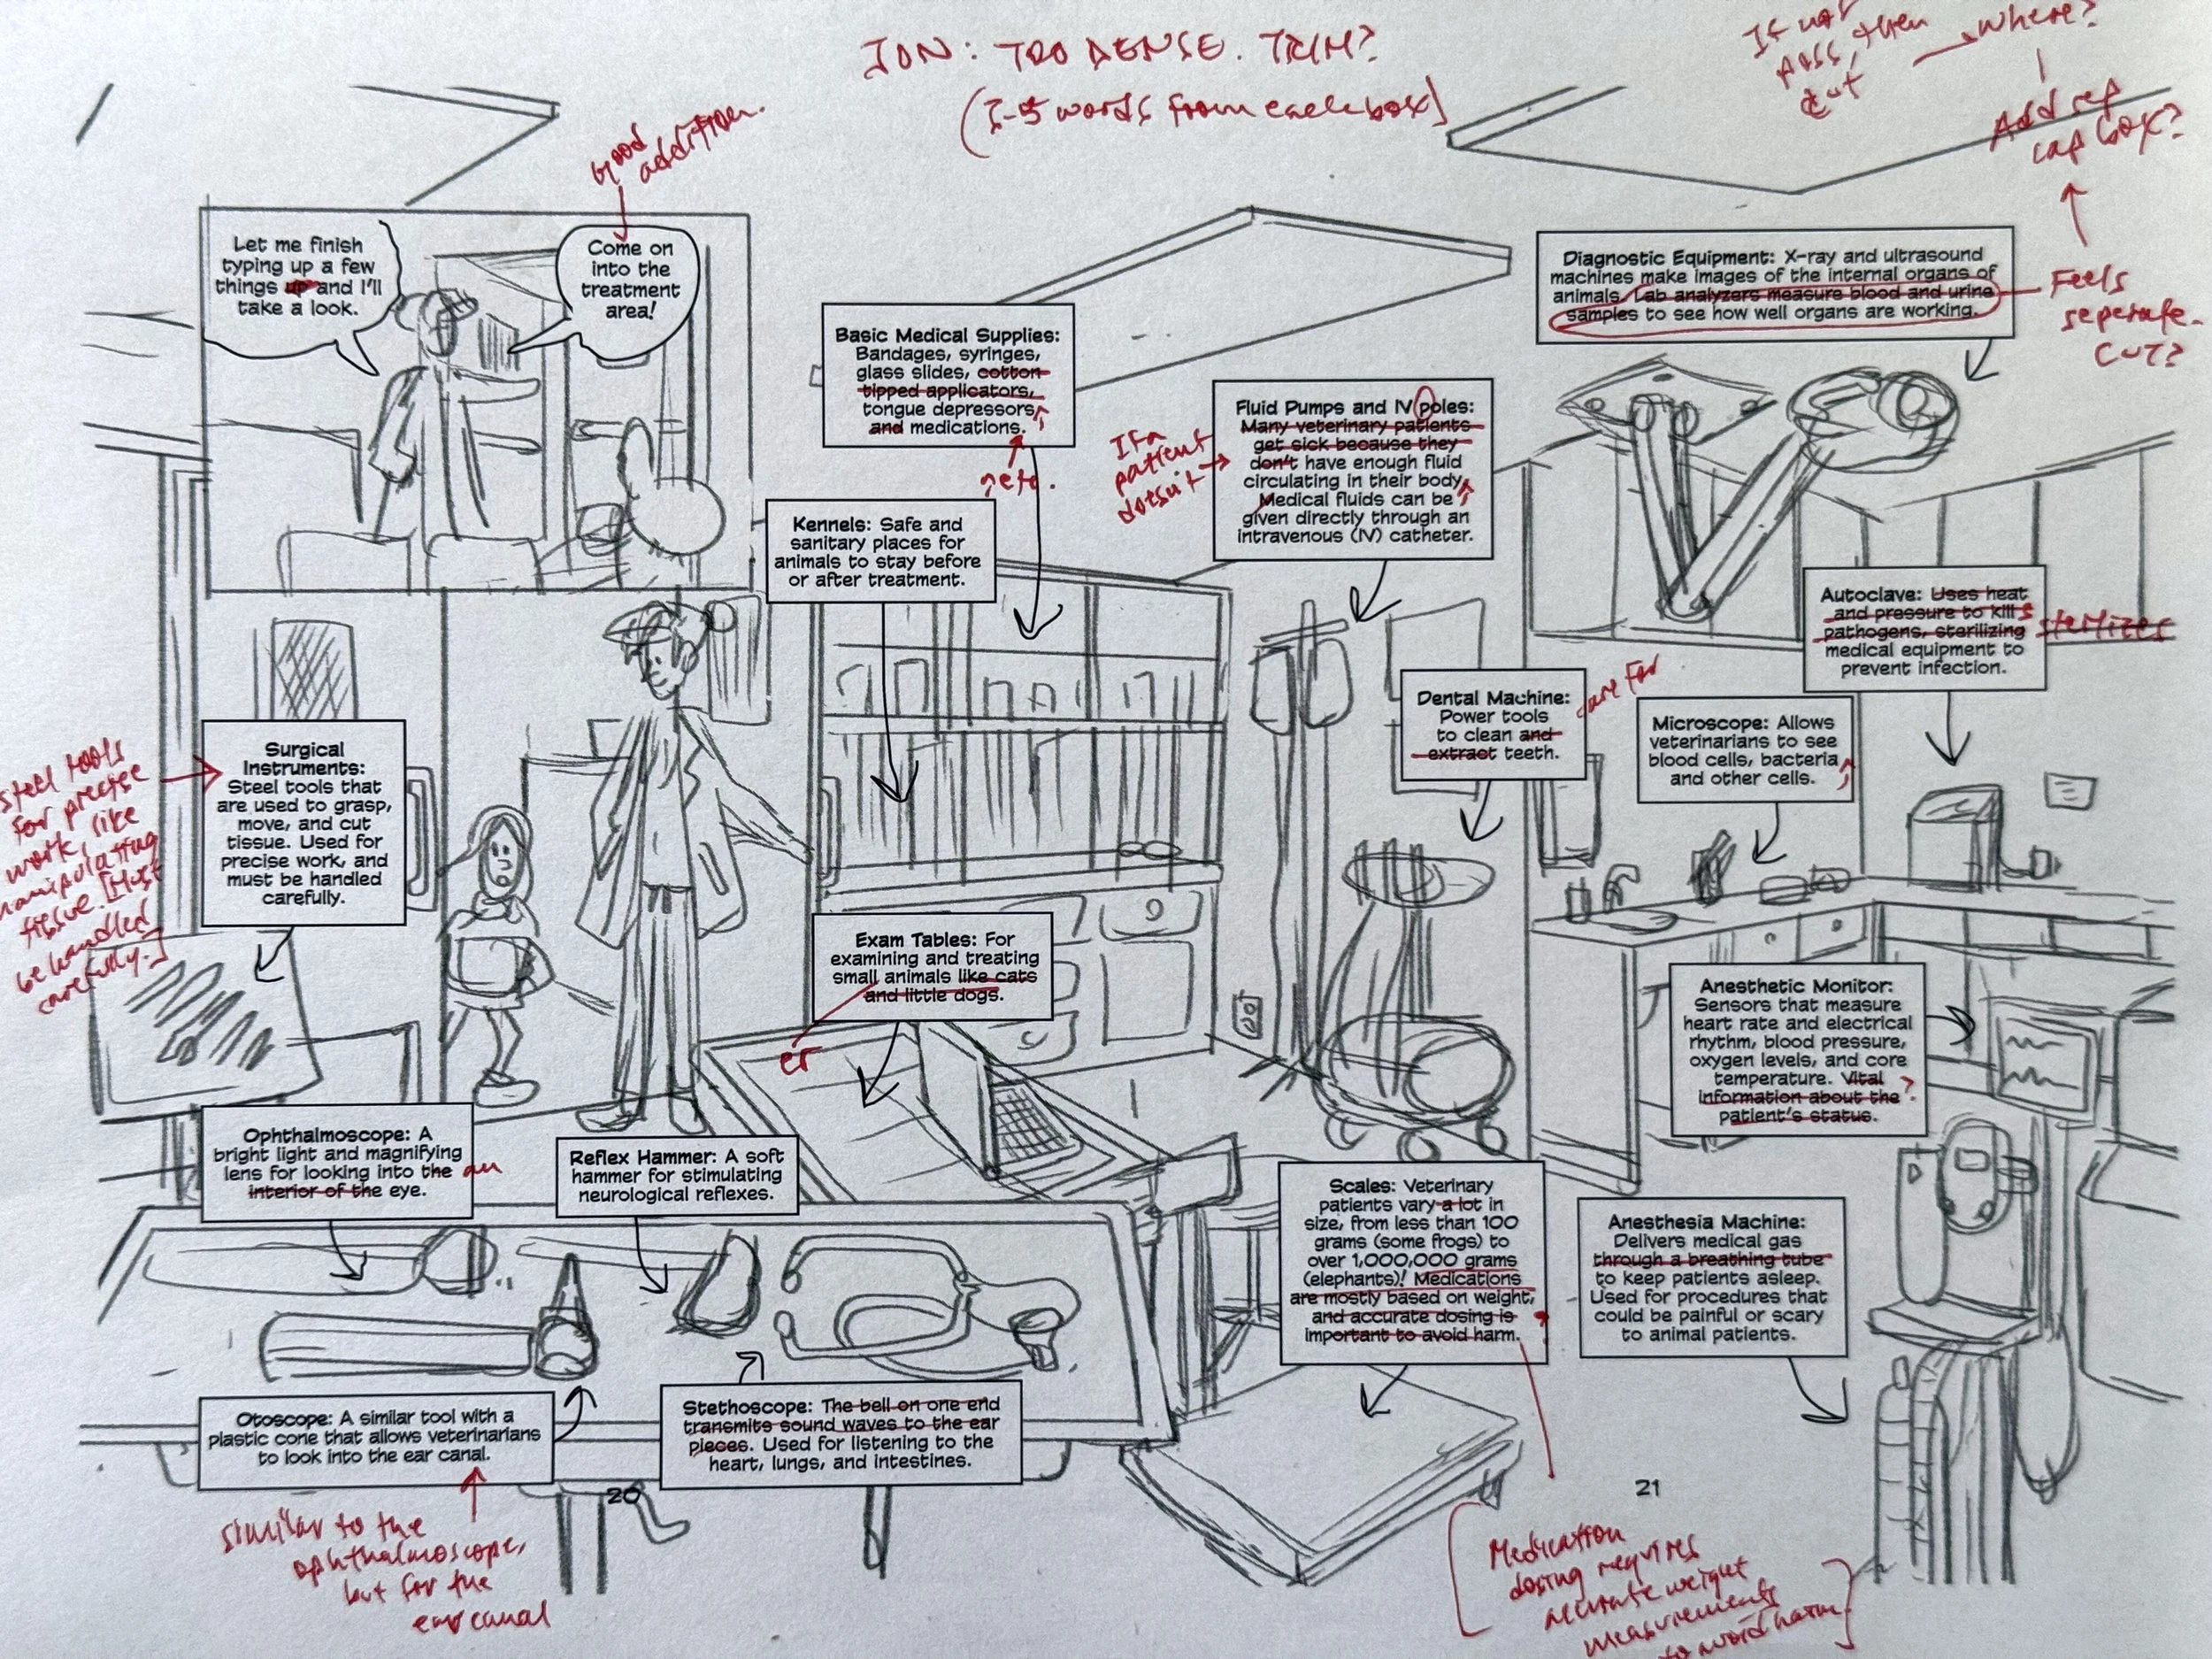 JON: TOO DENSE. TRIM?
(3-5 words from each box]
If not
pass, then
cut
where?
Add sep
cap box?
Good
addition.
Let me finish
typing up a few
things up and I'll
take a look.
Come on
into the
treatment
area!
Basic Medical Supplies:
Bandages, syringes,
glass slides, cotton
tipped applicators,
tongue depressors,
and medications.
, etc.
Kennels: Safe and
sanitary places for
animals to stay before
or after treatment.
Fluid Pumps and IV poles:
Many veterinary patients
get sick because they
don't have enough fluid
circulating in their body.
Medical fluids can be
given directly through an
intravenous (IV) catheter.
If a
patient
doesn't
Diagnostic Equipment: X-ray and ultrasound
machines make images of the internal organs of
animals. Lab analyzers measure blood and urine
samples to see how well organs are working.
Feels
seperate.
CUT?
Autoclave: Uses heat
and pressure to kill
pathogens, sterilizing
medical equipment to
prevent infection.
sterilizes
Dental Machine:
Power tools
to clean and
extract teeth.
care for
Microscope: Allows
veterinarians to see
blood cells, bacteria
and other cells.
Surgical
Instruments:
Steel tools that
are used to grasp,
move, and cut
tissue. Used for
precise work, and
must be handled
carefully.
Steel tools
for precise
work, like
manipulating
tissue. [Must
be handled
carefully.]
Exam Tables: For
examining and treating
small animals like cats
and little dogs.
er
Anesthetic Monitor:
Sensors that measure
heart rate and electrical
rhythm, blood pressure,
oxygen levels, and core
temperature. Vital
information about the
patient's status.
?
Ophthalmoscope: A
bright light and magnifying
lens for looking into the
interior of the eye.
an
Reflex Hammer: A soft
hammer for stimulating
neurological reflexes.
Scales: Veterinary
patients vary a lot in
size, from less than 100
grams (some frogs) to
over 1,000,000 grams
(elephants)! Medications
are mostly based on weight,
and accurate dosing is
important to avoid harm.
Anesthesia Machine:
Delivers medical gas
through a breathing tube
to keep patients asleep.
Used for procedures that
could be painful or scary
to animal patients.
Otoscope: A similar tool with a
plastic cone that allows veterinarians
to look into the ear canal.
Stethoscope: The bell on one end
transmits sound waves to the ear
pieces. Used for listening to the
heart, lungs, and intestines.
20
21
similar to the
ophthalmoscope,
but for the
ear canal
Medication
dosing requires
accurate weight
measurements
to avoid harm.